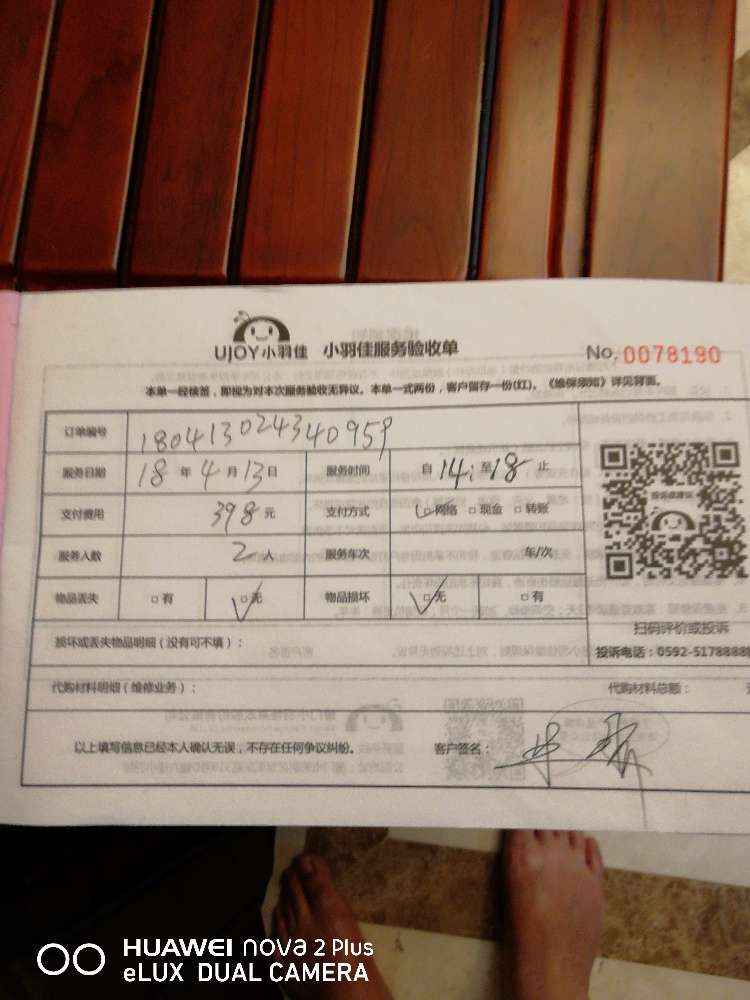 UJOY小羽佳 小羽佳服务验收单 No. 0078190
本单一经核签，即视为对本次服务验收无异议。本单一式两份，客户留存一份(红)。《维保须知》详见背面。
订单编号 180413024340959
服务日期 18 年 4 月 13 日 服务时间 自 14: 至 18 止
支付费用 398 元 支付方式 □网络 □现金 □转账
服务人数 2 人 服务车次 车/次
物品丢失 □有 □无 物品损坏 □无 □有
扫码评价或投诉
损坏或丢失物品明细（没有可不填）： 投诉电话：0592-5178888
代购材料明细（维修业务）： 代购材料总额：
以上填写信息已经本人确认无误，不存在任何争议纠纷。 客户签名：
HUAWEI nova 2 Plus
eLUX DUAL CAMERA